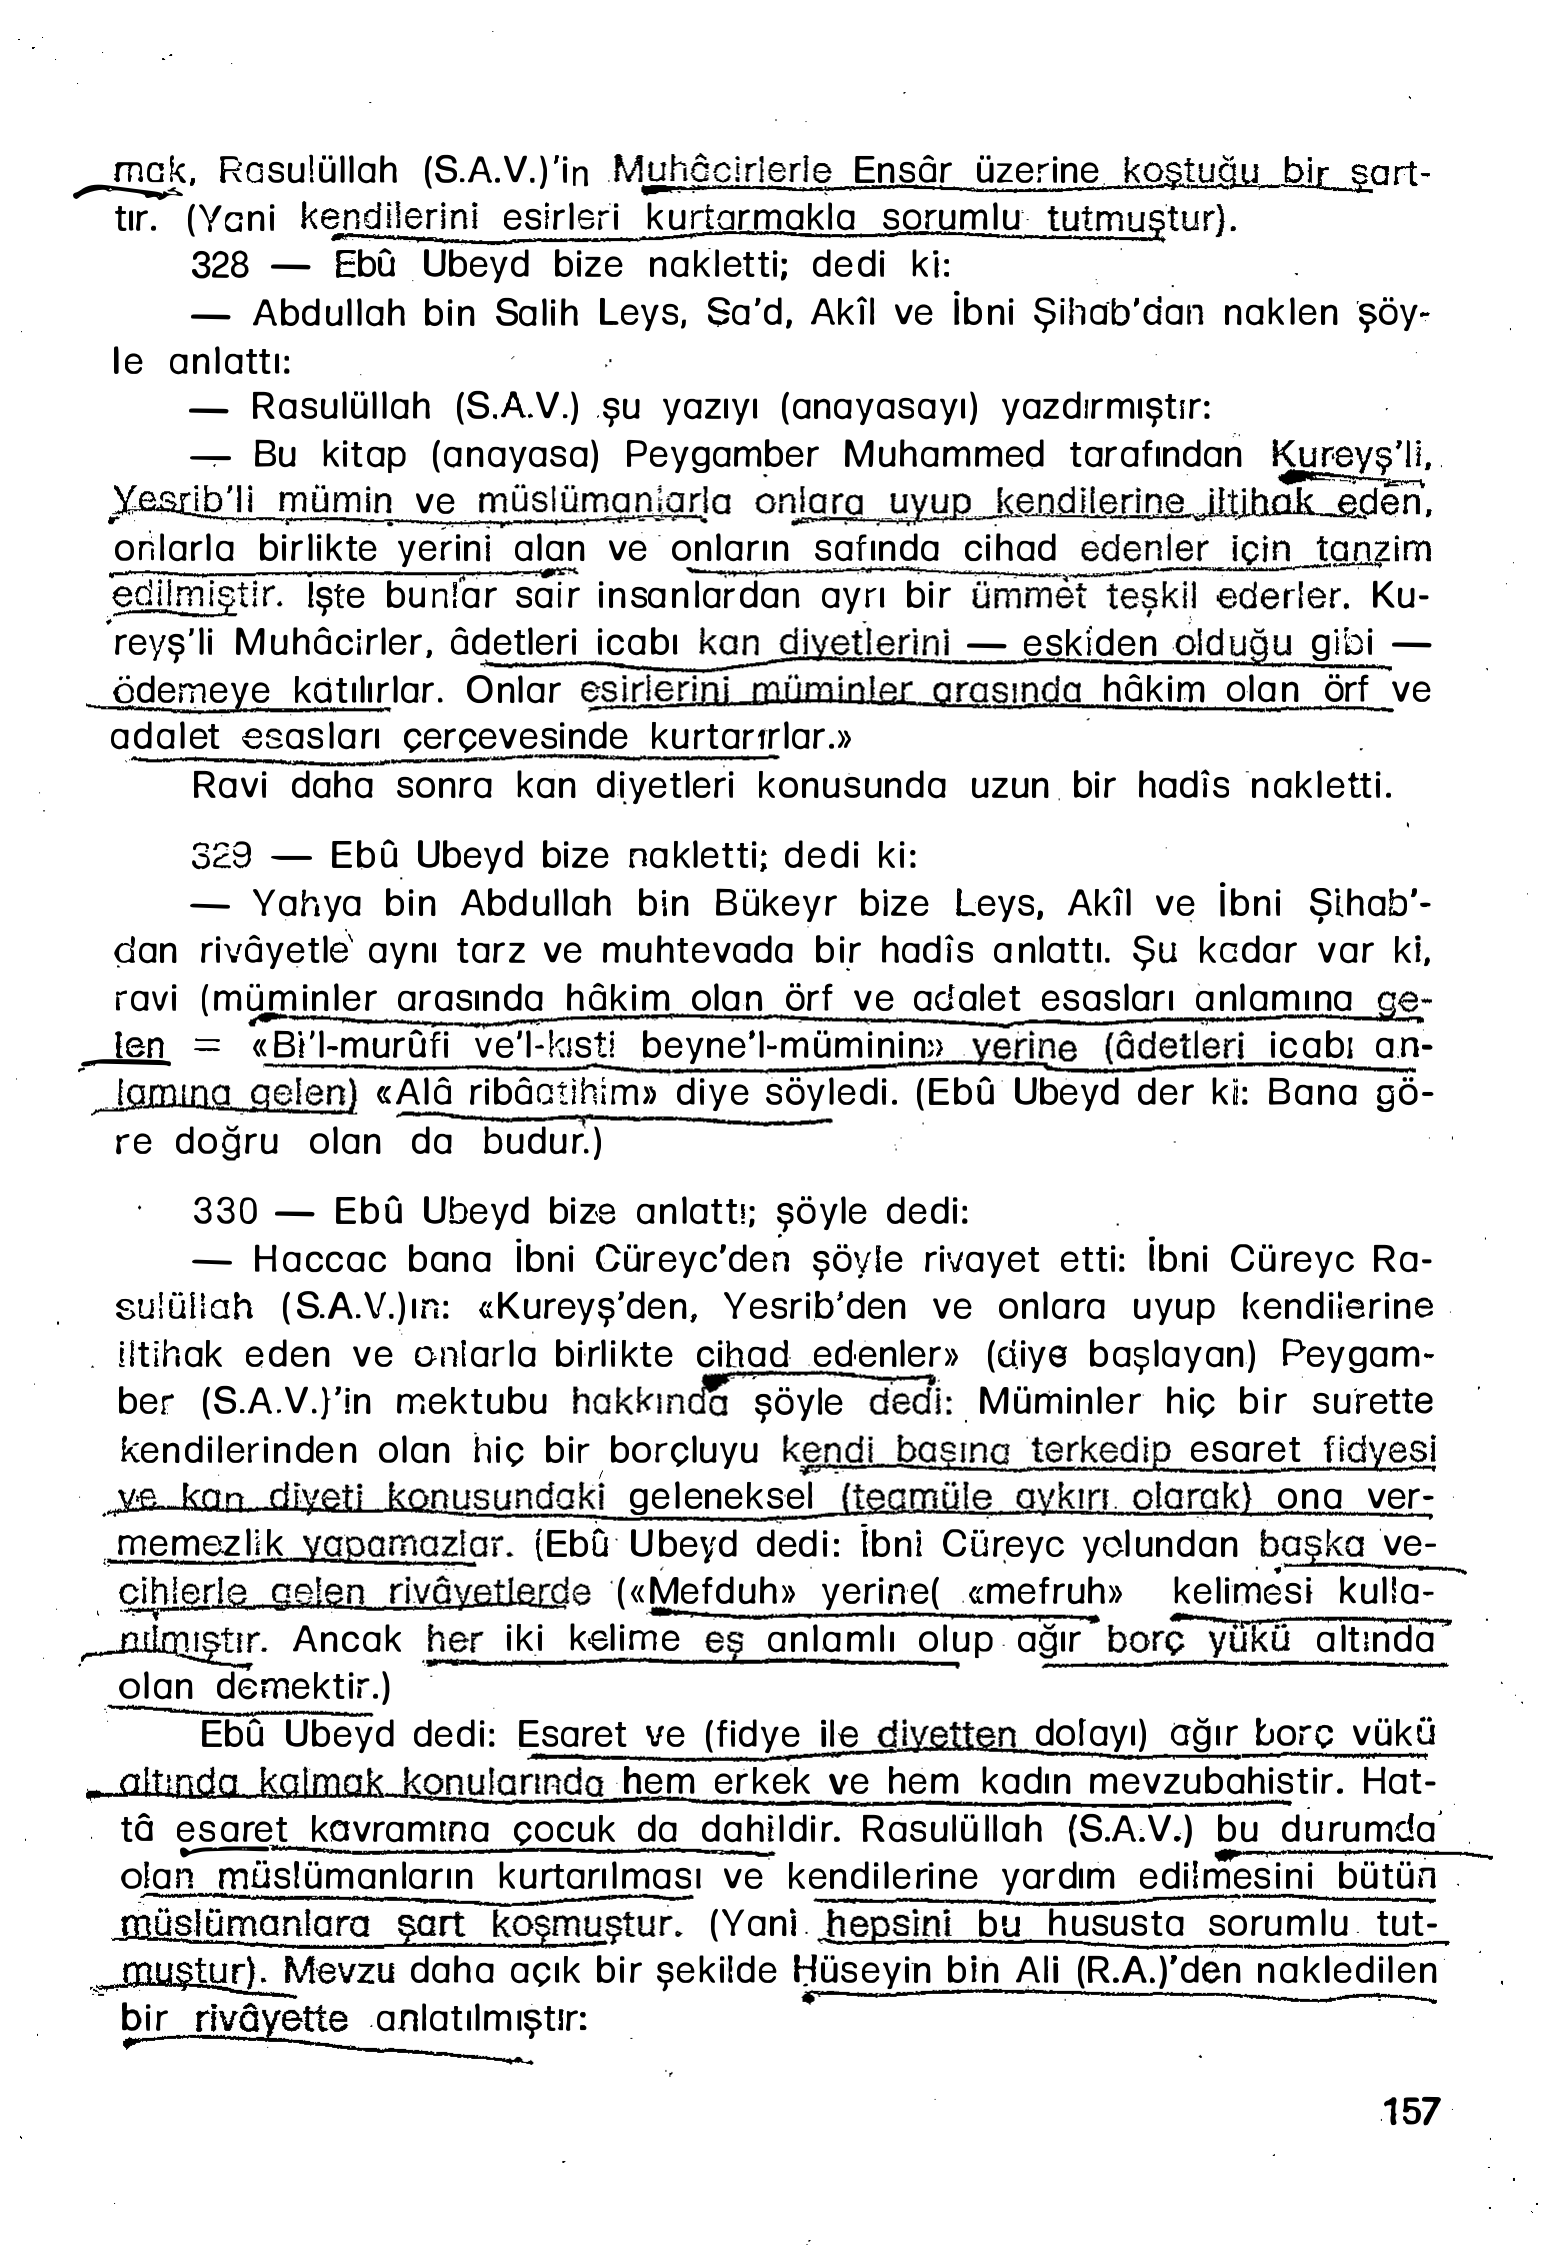 mak, Rasulüllah (S.A.V.)'in Muhâcirlerle Ensâr üzerine koştuğu bir şart-
tır. (Yani kendilerini esirleri kurtarmakla sorumlu tutmuştur).
328 — Ebû Ubeyd bize nakletti; dedi ki:
— Abdullah bin Salih Leys, Sa'd, Akîl ve İbni Şihab'dan naklen şöy-
le anlattı:
— Rasulüllah (S.A.V.) şu yazıyı (anayasayı) yazdırmıştır:
— Bu kitap (anayasa) Peygamber Muhammed tarafından Kureyş'li,
Yesrib'li mümin ve müslümanlarla onlara uyup kendilerine iltihak eden,
onlarla birlikte yerini alan ve onların safında cihad edenler için tanzim
edilmiştir. İşte bunlar sair insanlardan ayrı bir ümmet teşkil ederler. Ku-
reyş'li Muhâcirler, âdetleri icabı kan diyetlerini — eskiden olduğu gibi —
ödemeye katılırlar. Onlar esirlerini müminler arasında hâkim olan örf ve
adalet esasları çerçevesinde kurtarırlar.»
Ravi daha sonra kan diyetleri konusunda uzun bir hadîs nakletti.
329 — Ebû Ubeyd bize nakletti; dedi ki:
— Yahya bin Abdullah bin Bükeyr bize Leys, Akîl ve İbni Şihab'-
dan rivâyetle aynı tarz ve muhtevada bir hadîs anlattı. Şu kadar var ki,
ravi (müminler arasında hâkim olan örf ve adalet esasları anlamına ge-
len = «Bi'l-murûfi ve'l-kısti beyne'l-müminin» yerine (âdetleri icabı an-
lamına gelen) «Alâ ribâatihim» diye söyledi. (Ebû Ubeyd der ki: Bana gö-
re doğru olan da budur.)
330 — Ebû Ubeyd bize anlattı; şöyle dedi:
— Haccac bana İbni Cüreyc'den şöyle rivayet etti: İbni Cüreyc Ra-
sulüllah (S.A.V.)ın: «Kureyş'den, Yesrib'den ve onlara uyup kendilerine
iltihak eden ve onlarla birlikte cihad edenler» (diye başlayan) Peygam-
ber (S.A.V.)'in mektubu hakkında şöyle dedi: Müminler hiç bir surette
kendilerinden olan hiç bir borçluyu kendi başına terkedip esaret fidyesi
ve kan diyeti konusundaki geleneksel (teamüle aykırı olarak) ona ver-
memezlik yapamazlar. (Ebû Ubeyd dedi: İbni Cüreyc yolundan başka ve-
cihlerle gelen rivâyetlerde («Mefduh» yerine( «mefruh» kelimesi kulla-
nılmıştır. Ancak her iki kelime eş anlamlı olup ağır borç yükü altında
olan demektir.)
Ebû Ubeyd dedi: Esaret ve (fidye ile diyetten dolayı) ağır borç yükü
altında kalmak konularında hem erkek ve hem kadın mevzubahistir. Hat-
tâ esaret kavramına çocuk da dahildir. Rasulüllah (S.A.V.) bu durumda
olan müslümanların kurtarılması ve kendilerine yardım edilmesini bütün
müslümanlara şart koşmuştur. (Yani hepsini bu hususta sorumlu tut-
muştur). Mevzu daha açık bir şekilde Hüseyin bin Ali (R.A.)'den nakledilen
bir rivâyette anlatılmıştır:
157